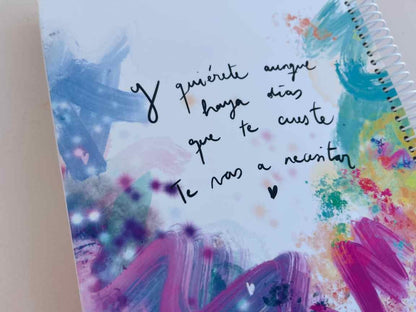 Y quiérete aunque
haya días
que te cueste
Te vas a necesitar